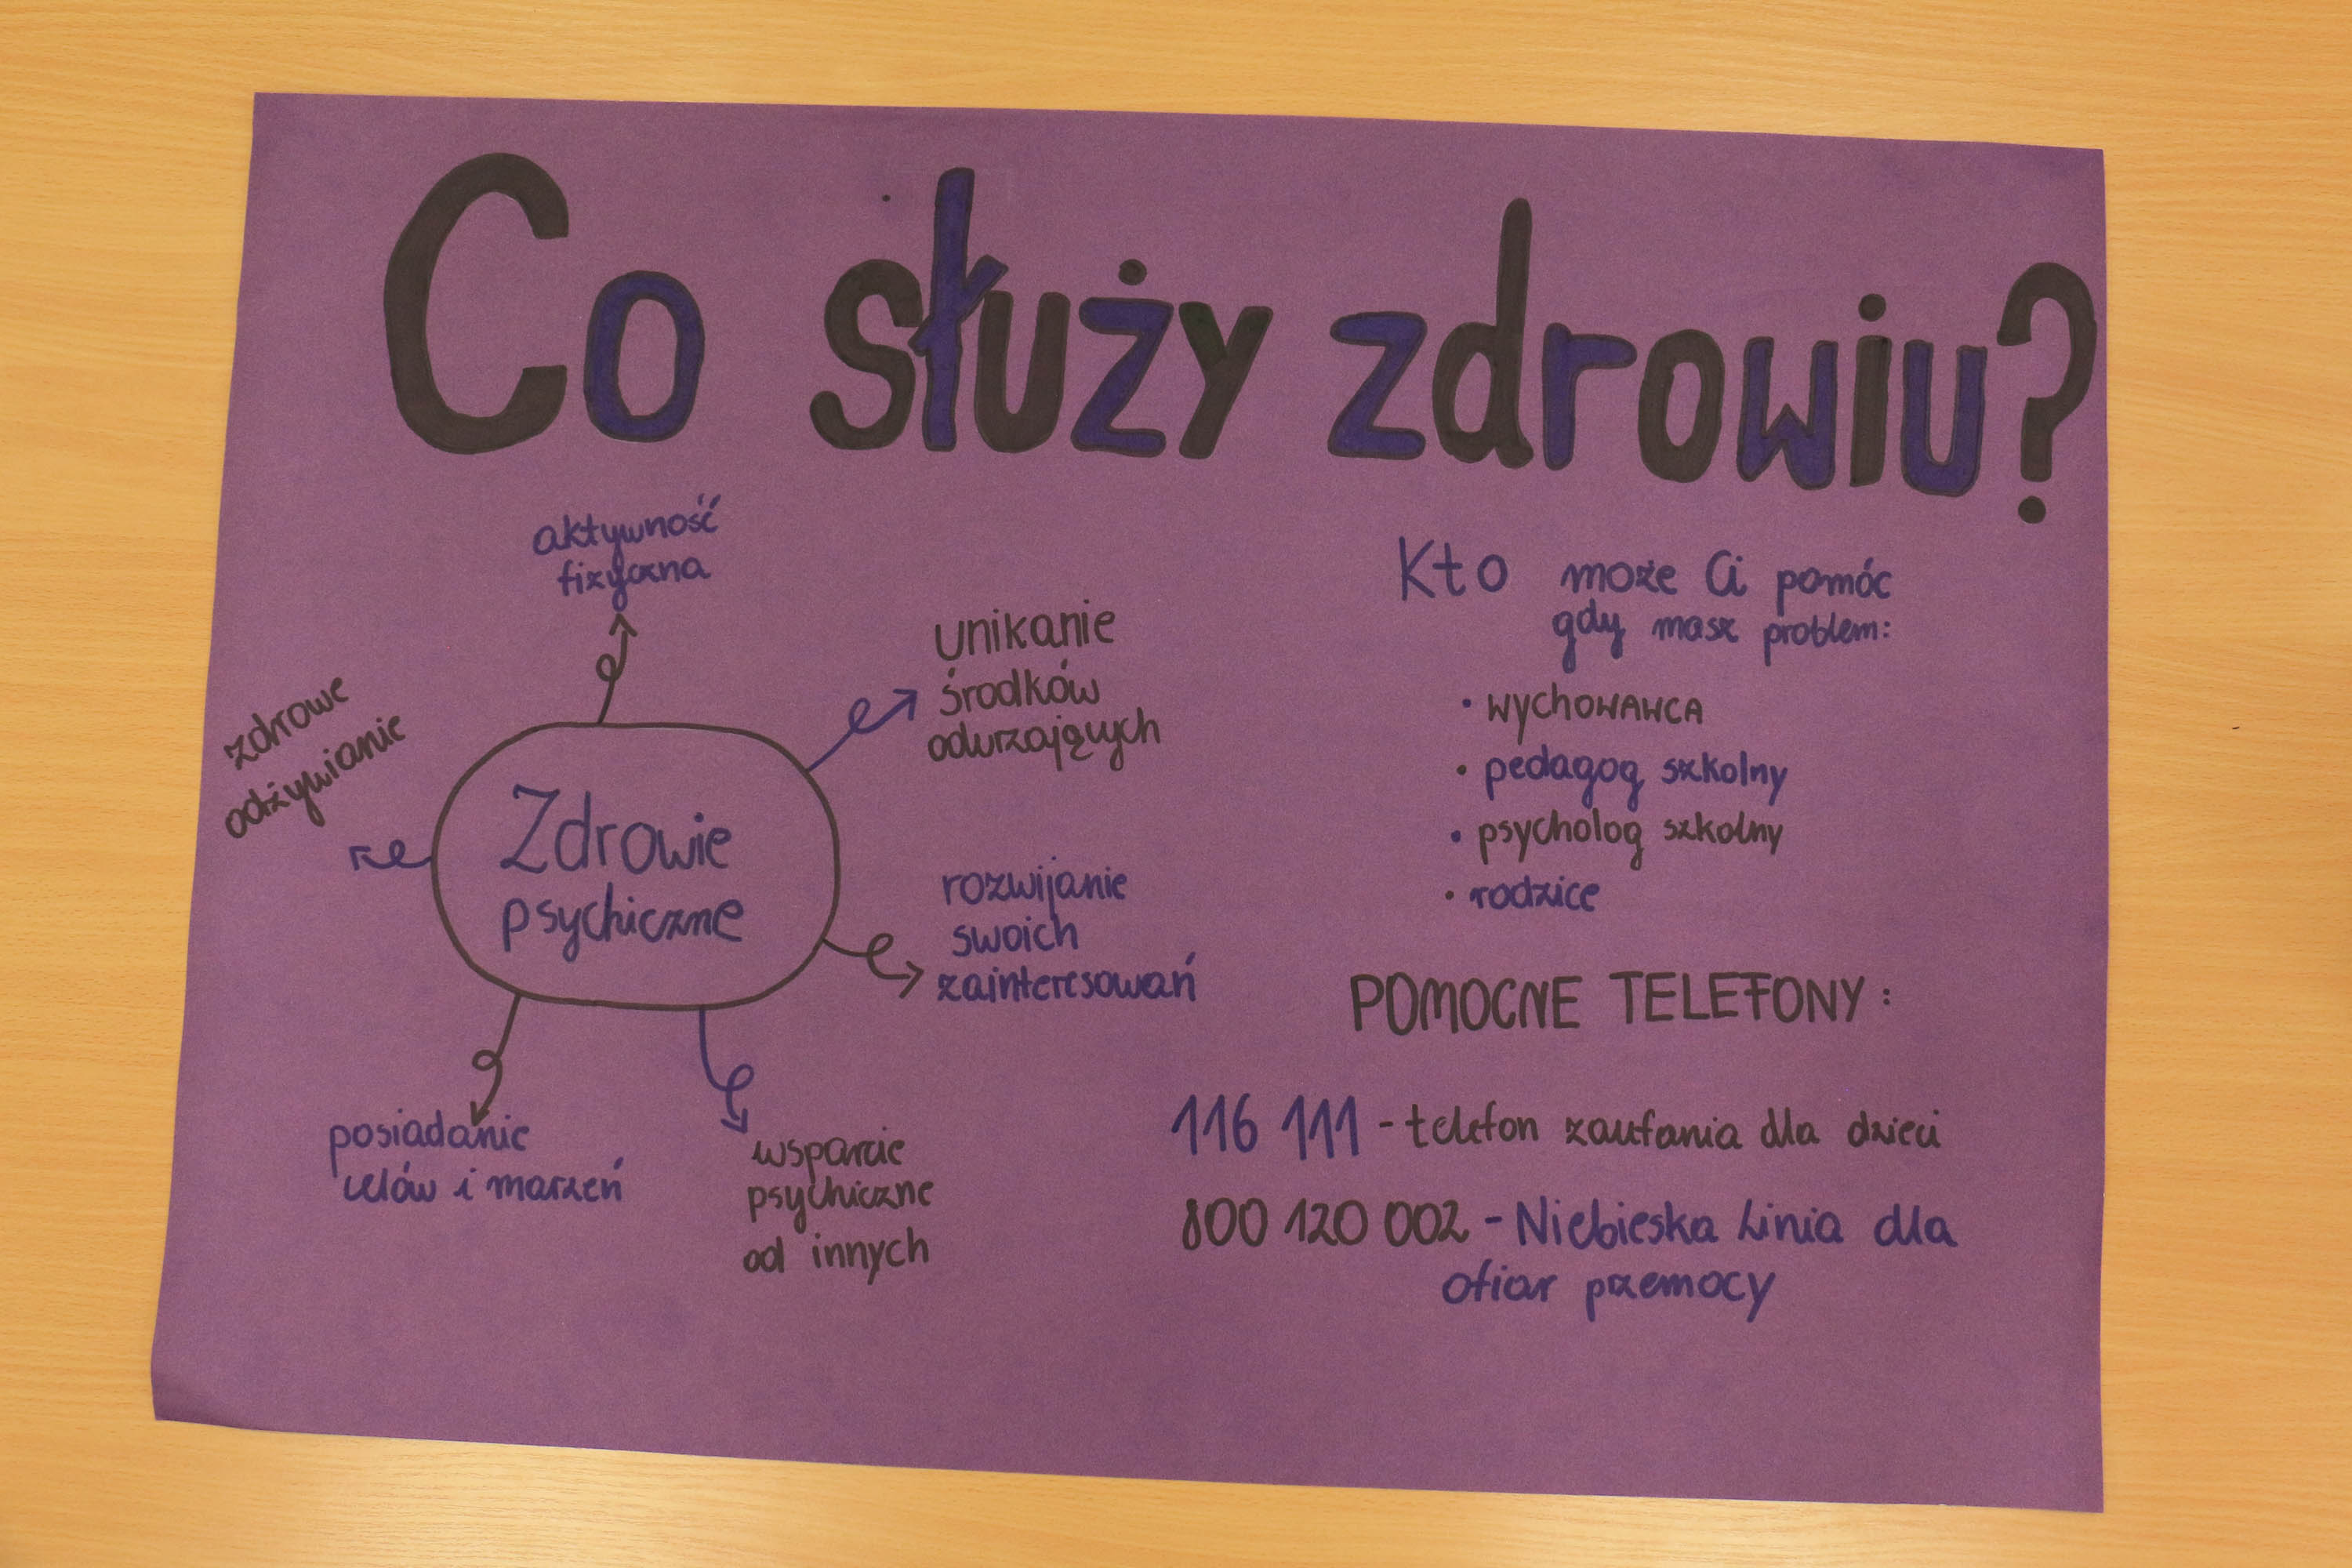 Co służy zdrowiu?
aktywność
fizyczna
unikanie
środków
odurzających
zdrowe
odżywianie
Zdrowie
psychiczne
rozwijanie
swoich
zainteresowań
posiadanie
celów i marzeń
wsparcie
psychiczne
od innych
Kto może Ci pomóc
gdy masz problem:
• wychowawca
• pedagog szkolny
• psycholog szkolny
• rodzice
POMOCNE TELEFONY:
116 111 - telefon zaufania dla dzieci
800 120 002 - Niebieska Linia dla
ofiar przemocy